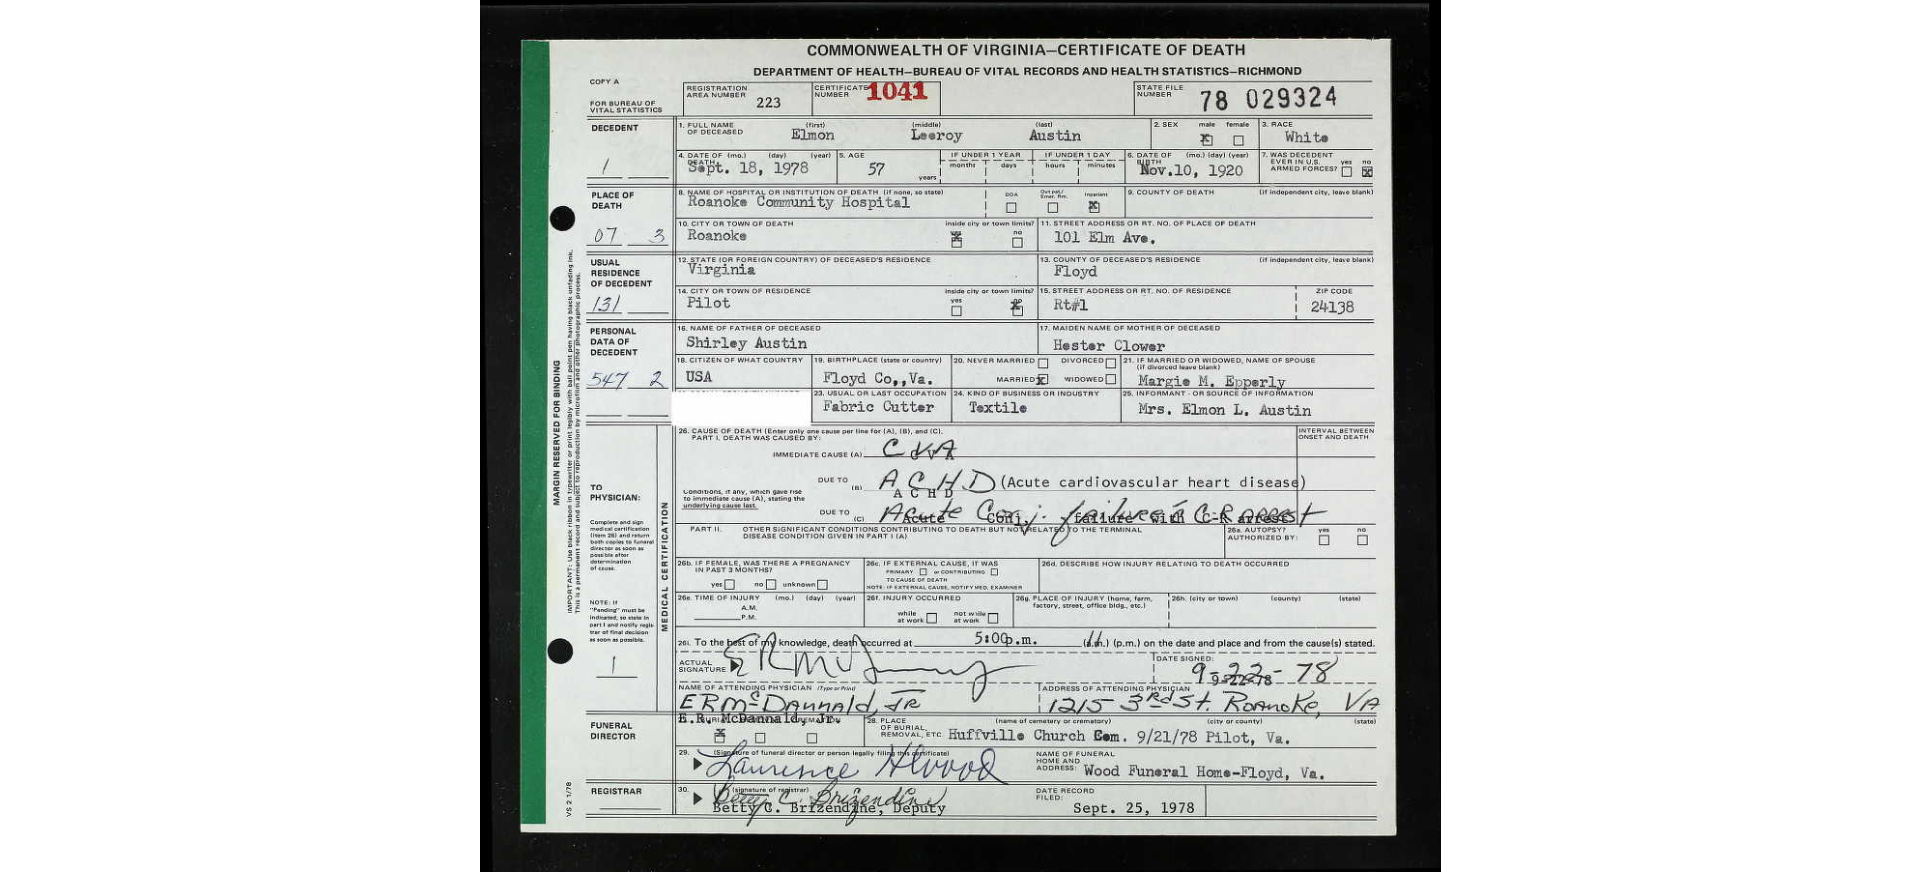 COMMONWEALTH OF VIRGINIA—CERTIFICATE OF DEATH
DEPARTMENT OF HEALTH—BUREAU OF VITAL RECORDS AND HEALTH STATISTICS—RICHMOND
COPY A
FOR BUREAU OF VITAL STATISTICS
REGISTRATION AREA NUMBER 223
CERTIFICATE NUMBER 1041
STATE FILE NUMBER 78 029324
DECEDENT
1
1. FULL NAME OF DECEASED (first) Elmon (middle) Leeroy (last) Austin
2. SEX male X female
3. RACE White
4. DATE OF DEATH (mo.) (day) (year) Sept. 18, 1978
5. AGE 57 years
IF UNDER 1 YEAR months days
IF UNDER 1 DAY hours minutes
6. DATE OF BIRTH (mo.) (day) (year) Nov.10, 1920
7. WAS DECEDENT EVER IN U.S. ARMED FORCES? yes no X
PLACE OF DEATH
07 3
8. NAME OF HOSPITAL OR INSTITUTION OF DEATH (if none, so state) Roanoke Community Hospital
DOA Out pat./ Emer. Rm. Inpatient X
9. COUNTY OF DEATH (if independent city, leave blank)
10. CITY OR TOWN OF DEATH Roanoke
inside city or town limits? yes X no
11. STREET ADDRESS OR RT. NO. OF PLACE OF DEATH 101 Elm Ave.
USUAL RESIDENCE OF DECEDENT
131
12. STATE (OR FOREIGN COUNTRY) OF DECEASED'S RESIDENCE Virginia
13. COUNTY OF DECEASED'S RESIDENCE (if independent city, leave blank) Floyd
14. CITY OR TOWN OF RESIDENCE Pilot
inside city or town limits? yes no X
15. STREET ADDRESS OR RT. NO. OF RESIDENCE Rt#1
ZIP CODE 24138
PERSONAL DATA OF DECEDENT
547 2
16. NAME OF FATHER OF DECEASED Shirley Austin
17. MAIDEN NAME OF MOTHER OF DECEASED Hester Clower
18. CITIZEN OF WHAT COUNTRY USA
19. BIRTHPLACE (state or country) Floyd Co,,Va.
20. NEVER MARRIED DIVORCED MARRIED X WIDOWED
21. IF MARRIED OR WIDOWED, NAME OF SPOUSE (if divorced leave blank) Margie M. Epperly
23. USUAL OR LAST OCCUPATION Fabric Cutter
24. KIND OF BUSINESS OR INDUSTRY Textile
25. INFORMANT - OR SOURCE OF INFORMATION Mrs. Elmon L. Austin
MARGIN RESERVED FOR BINDING
IMPORTANT: Use black ribbon in typewriter or print legibly with ball point pen having black unfading ink.
This is a permanent record and subject to reproduction by microfilm and other photographic process.
TO PHYSICIAN:
Complete and sign medical certification (item 26) and return both copies to funeral director as soon as possible after determination of cause.
NOTE: If "Pending" must be indicated, so state in part I and notify registrar of final decision as soon as possible.
1
MEDICAL CERTIFICATION
26. CAUSE OF DEATH (Enter only one cause per line for (A), (B), and (C).
PART I. DEATH WAS CAUSED BY:
INTERVAL BETWEEN ONSET AND DEATH
IMMEDIATE CAUSE (A) CVA
C V A
Conditions, if any, which gave rise to immediate cause (A), stating the underlying cause last.
DUE TO (B) ACHD (Acute cardiovascular heart disease)
A C H D
DUE TO (C) Acute Conj. failure c̄ C-R arrest
Acute Conj. failure with C-R arrest
PART II. OTHER SIGNIFICANT CONDITIONS CONTRIBUTING TO DEATH BUT NOT RELATED TO THE TERMINAL DISEASE CONDITION GIVEN IN PART I (A)
26a. AUTOPSY? AUTHORIZED BY: yes no
26b. IF FEMALE, WAS THERE A PREGNANCY IN PAST 3 MONTHS? yes no unknown
26c. IF EXTERNAL CAUSE, IT WAS PRIMARY or CONTRIBUTING TO CAUSE OF DEATH
NOTE: IF EXTERNAL CAUSE, NOTIFY MED. EXAMINER
26d. DESCRIBE HOW INJURY RELATING TO DEATH OCCURRED
26e. TIME OF INJURY (mo.) (day) (year) A.M. P.M.
26f. INJURY OCCURRED while at work not while at work
26g. PLACE OF INJURY (home, farm, factory, street, office bldg., etc.)
26h. (city or town) (county) (state)
26i. To the best of my knowledge, death occurred at 5:00p.m. (a.m.) (p.m.) on the date and place and from the cause(s) stated.
ACTUAL SIGNATURE
DATE SIGNED: 9-22-78
9-22-78
NAME OF ATTENDING PHYSICIAN (Type or Print) ER McDannald, Jr
E.R. McDannald, Jr.
ADDRESS OF ATTENDING PHYSICIAN 1215 3rd St. Roanoke, VA
FUNERAL DIRECTOR
X
28. PLACE OF BURIAL, REMOVAL, ETC. (name of cemetery or crematory) (city or county) (state)
Huffville Church Cem. 9/21/78 Pilot, Va.
29. (Signature of funeral director or person legally filing this certificate) Laurence H Wood
NAME OF FUNERAL HOME AND ADDRESS: Wood Funeral Home-Floyd, Va.
REGISTRAR
30. (signature of registrar) Betty C. Brizendine
Betty C. Brizendine, Deputy
DATE RECORD FILED: Sept. 25, 1978
VS 2 1/78